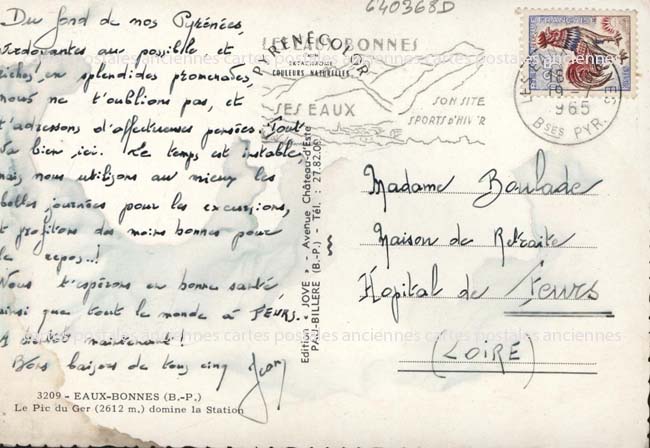 640368D
Du fond de nos Pyrénées,
verdoyantes au possible et
riches en splendides promenades,
nous ne t'oublions pas, et
t'adressons d'affectueuses pensées. Tout
va bien ici. Le temps est instable,
mais nous utilisons au mieux les
belles journées pour les excursions,
et profitons des moins bonnes pour
le repos..!
Nous t'espérons en bonne santé
ainsi que tout le monde à FEURS.
A bientôt maintenant!
Bons baisers de tous cinq
3209 - EAUX-BONNES (B.-P.)
Le Pic du Ger (2612 m.) domine la Station
PYRENECOLOR
COULEURS NATURELLES
Edition « JOVE » - Avenue Château-d'Este
PAU-BILLERE (B.-P.) - Tél. : 27.82.09
LES EAUX BONNES
SES EAUX
SON SITE
SPORTS D'HIVER
18 H
19 - 7
1965
BSES PYR.
Madame Boulade
Maison de Retraite
Hôpital de Feurs
(LOIRE)
cartes postales anciennes cartes postales anciennes cartes postales anciennes
cartes postales anciennes cartes postales anciennes cartes postales anciennes